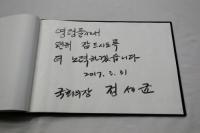 영령들께서
편히 잠드시도록
더 노력하겠습니다
2017. 3. 31
국회의장 정세균